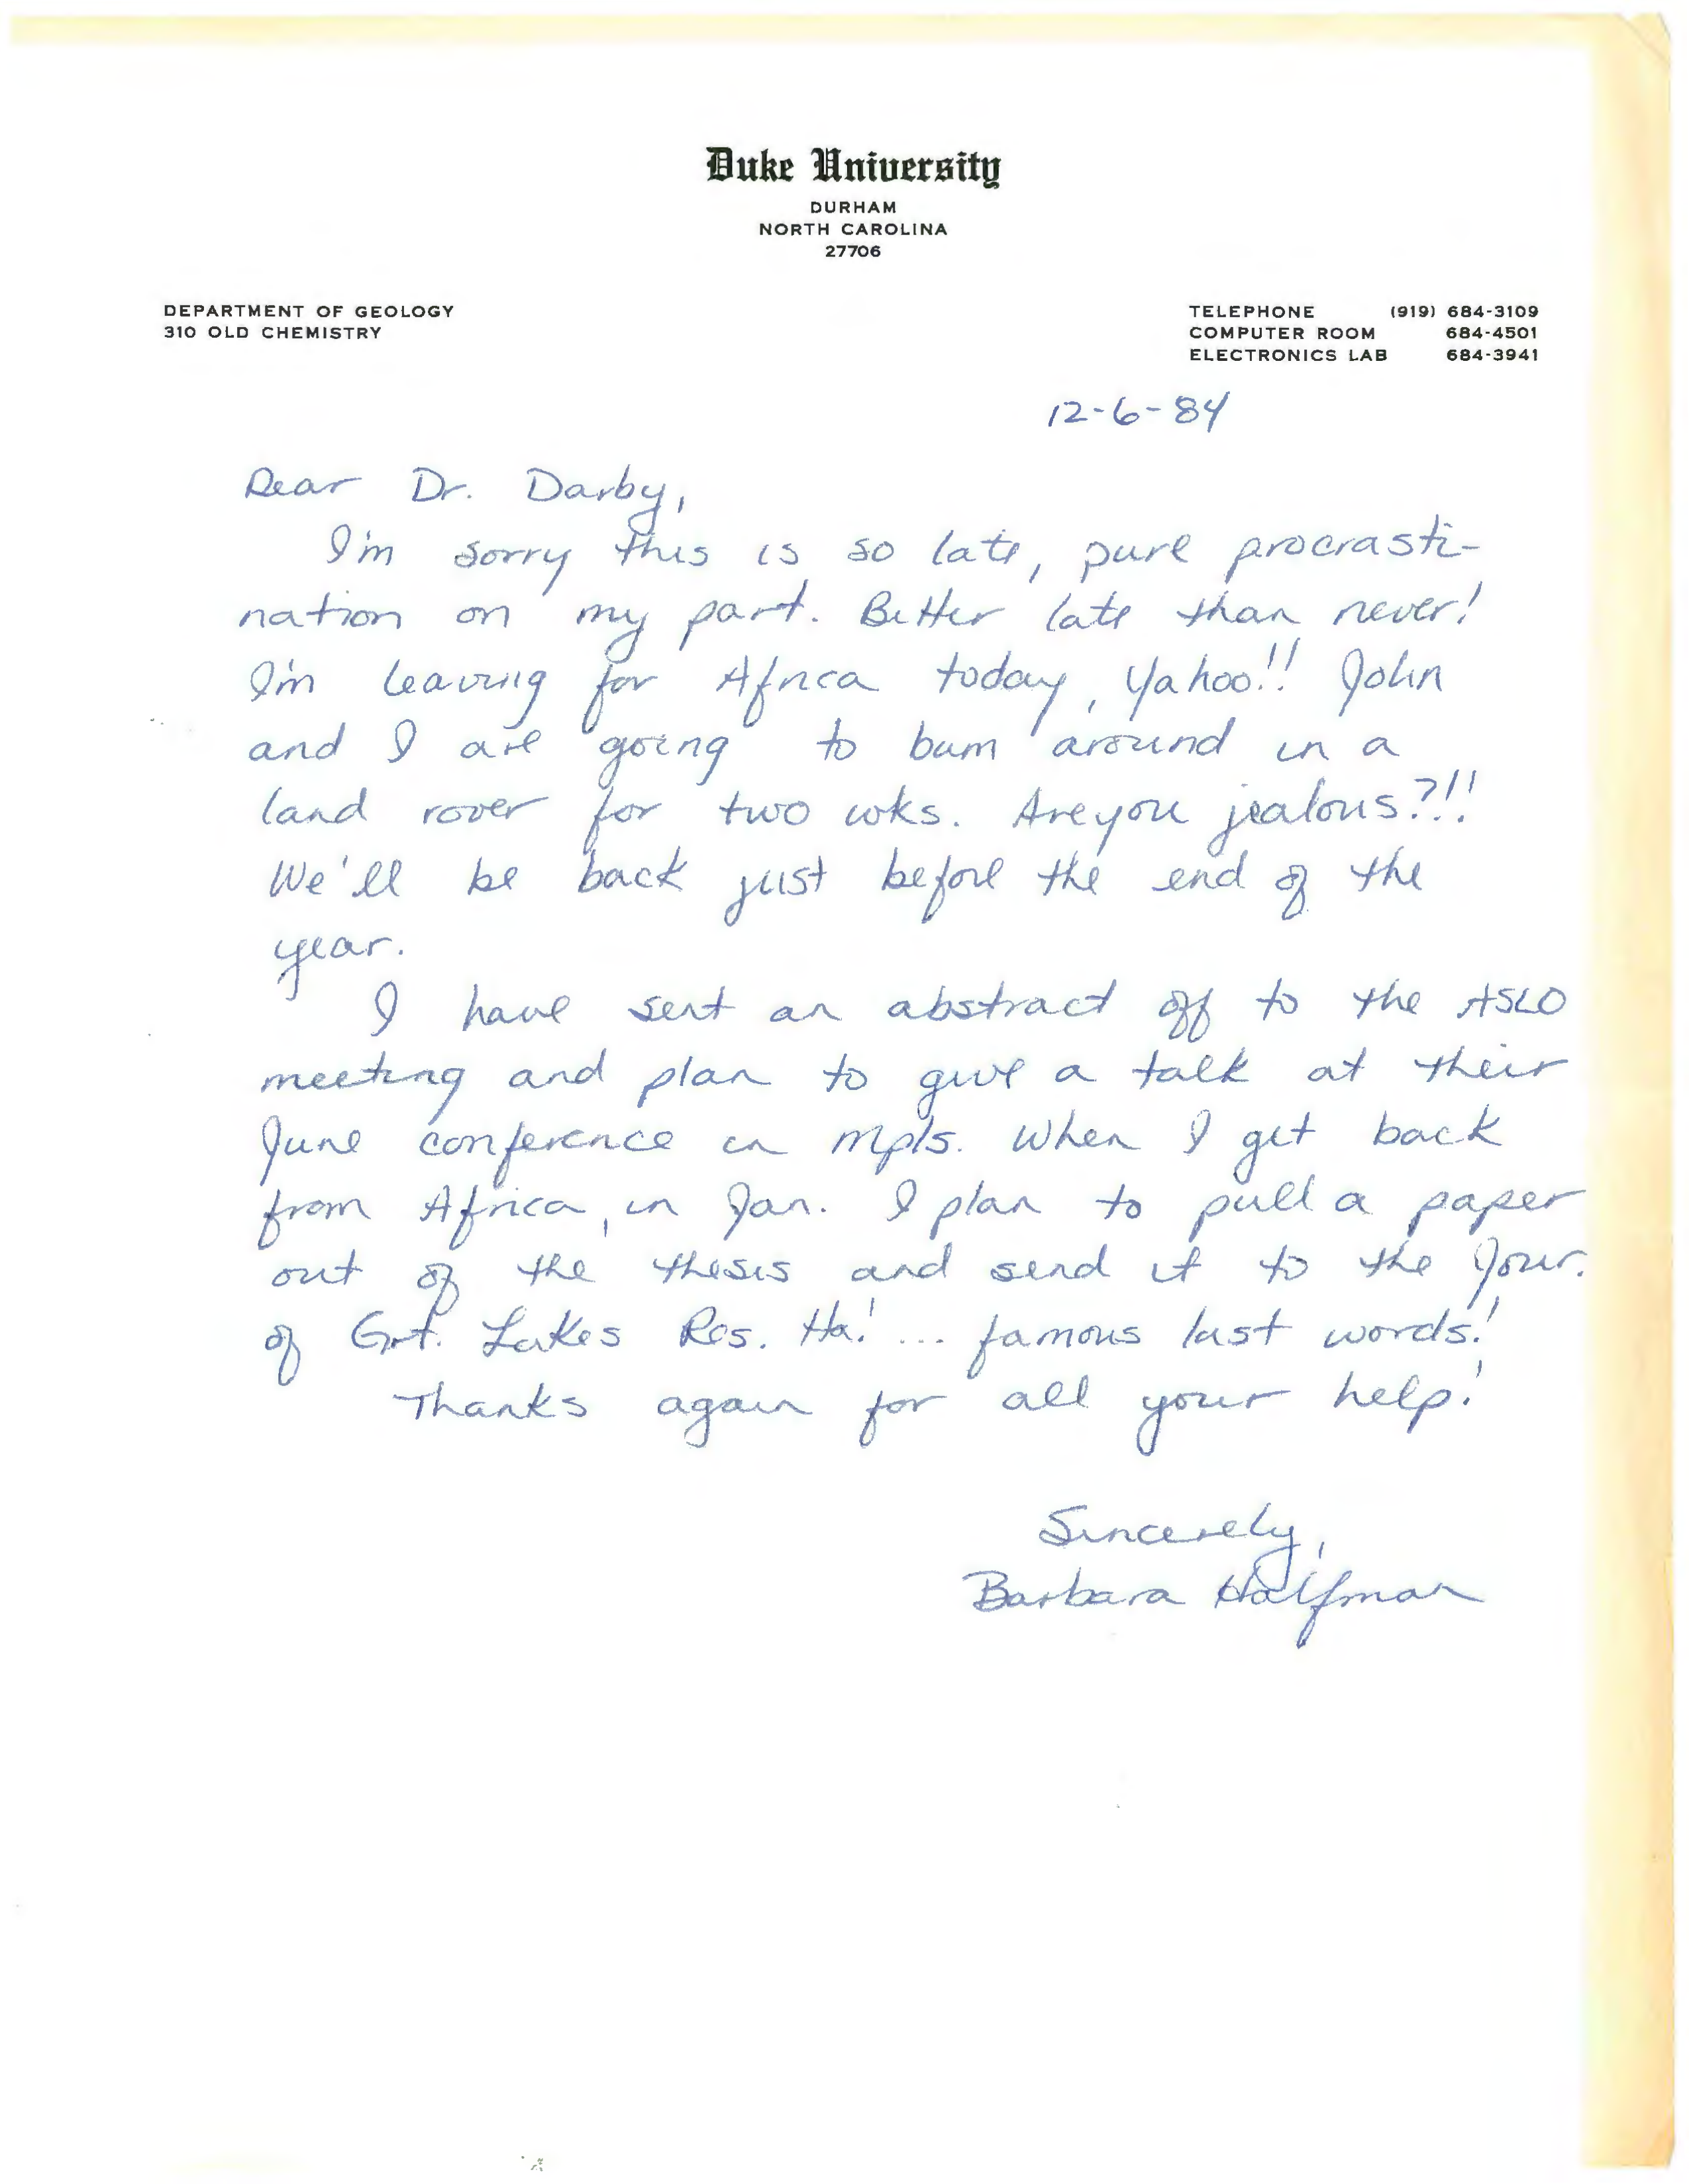 Duke University
DURHAM
NORTH CAROLINA
27706
DEPARTMENT OF GEOLOGY
310 OLD CHEMISTRY
TELEPHONE (919) 684-3109
COMPUTER ROOM 684-4501
ELECTRONICS LAB 684-3941
12-6-84
Dear Dr. Darby,
I'm sorry this is so late, pure procrasti-
nation on my part. Better late than never!
I'm leaving for Africa today, Yahoo!! John
and I are going to bum around in a
land rover for two wks. Are you jealous?!!
We'll be back just before the end of the
year.
I have sent an abstract off to the ASLO
meeting and plan to give a talk at their
June conference in Mpls. When I get back
from Africa, in Jan. I plan to pull a paper
out of the thesis and send it to the Jour.
of Grt. Lakes Res. Ha! ... famous last words!
Thanks again for all your help!
Sincerely,
Barbara Halfman